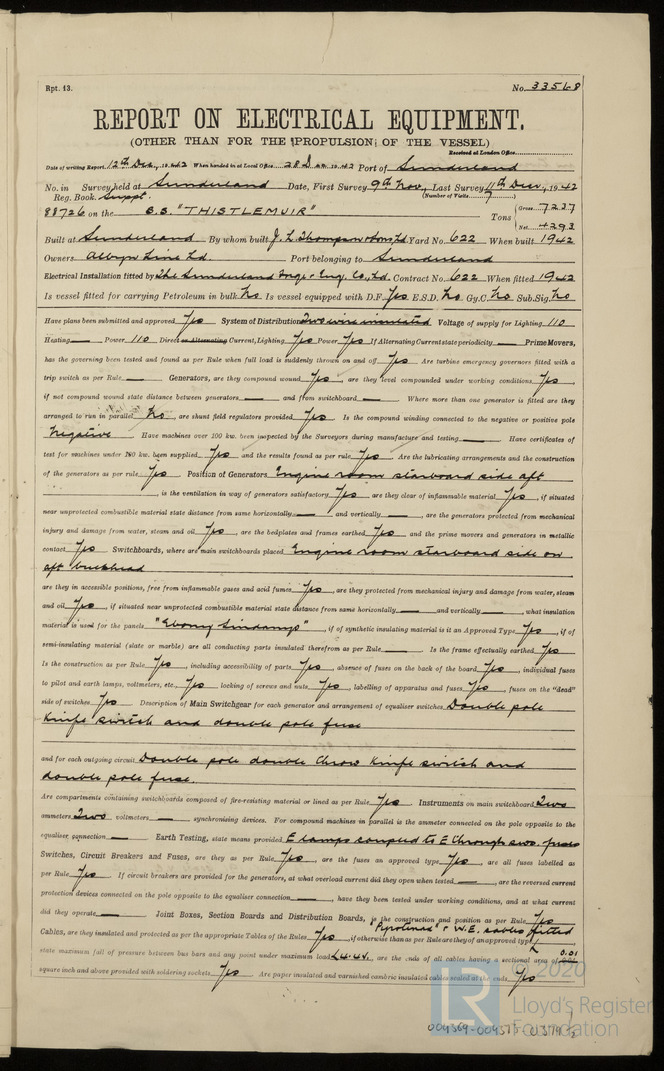 Rpt. 13.
No. 33568
REPORT ON ELECTRICAL EQUIPMENT.
(OTHER THAN FOR THE PROPULSION OF THE VESSEL)
Received at London Office
Date of writing Report 12th Dec. 1942 When handed in at Local Office 1942 Port of Sunderland
No. in Survey held at Sunderland Date, First Survey 9th Nov. Last Survey 11th Dec. 1942
Reg. Book. Suppt. (Number of Visits 7)
88726 on the S.S. "THISTLEMUIR" Tons { Gross 7237
Net 4293
Built at Sunderland By whom built J. L. Thompson & Sons Ld Yard No. 622 When built 1942
Owners Albyn Line Ld. Port belonging to Sunderland
Electrical Installation fitted by The Sunderland Forge & Eng. Co., Ld. Contract No. 622 When fitted 1942
Is vessel fitted for carrying Petroleum in bulk No Is vessel equipped with D.F. Yes E.S.D. No Gy.C. No Sub.Sig. No
Have plans been submitted and approved Yes System of Distribution Two wire insulated Voltage of supply for Lighting 110
Heating — Power 110 Direct or Alternating Current, Lighting Yes Power Yes If Alternating Current state periodicity — Prime Movers,
has the governing been tested and found as per Rule when full load is suddenly thrown on and off Yes Are turbine emergency governors fitted with a
trip switch as per Rule — Generators, are they compound wound Yes, are they level compounded under working conditions Yes,
if not compound wound state distance between generators — and from switchboard — Where more than one generator is fitted are they
arranged to run in parallel No, are shunt field regulators provided Yes Is the compound winding connected to the negative or positive pole
Negative Have machines over 100 kw. been inspected by the Surveyors during manufacture and testing — Have certificates of
test for machines under 100 kw. been supplied Yes and the results found as per rule Yes Are the lubricating arrangements and the construction
of the generators as per rule Yes Position of Generators Engine room starboard side aft
, is the ventilation in way of generators satisfactory Yes are they clear of inflammable material Yes, if situated
near unprotected combustible material state distance from same horizontally — and vertically —, are the generators protected from mechanical
injury and damage from water, steam and oil Yes, are the bedplates and frames earthed Yes and the prime movers and generators in metallic
contact Yes Switchboards, where are main switchboards placed Engine room starboard side on
aft bulkhead
are they in accessible positions, free from inflammable gases and acid fumes Yes, are they protected from mechanical injury and damage from water, steam
and oil Yes, if situated near unprotected combustible material state distance from same horizontally — and vertically —, what insulation
material is used for the panels "Ebony Sindanyo", if of synthetic insulating material is it an Approved Type Yes, if of
semi-insulating material (slate or marble) are all conducting parts insulated therefrom as per Rule — Is the frame effectually earthed Yes
Is the construction as per Rule Yes, including accessibility of parts Yes, absence of fuses on the back of the board Yes, individual fuses
to pilot and earth lamps, voltmeters, etc., Yes locking of screws and nuts Yes, labelling of apparatus and fuses Yes, fuses on the "dead"
side of switches Yes Description of Main Switchgear for each generator and arrangement of equaliser switches Double pole
Knife switch and double pole fuse
and for each outgoing circuit Double pole double throw Knife switch and
double pole fuse.
Are compartments containing switchboards composed of fire-resisting material or lined as per Rule Yes Instruments on main switchboard Two
ammeters Two voltmeters — synchronising devices. For compound machines in parallel is the ammeter connected on the pole opposite to the
equaliser connection — Earth Testing, state means provided E lamps coupled to E through sws. fuses
Switches, Circuit Breakers and Fuses, are they as per Rule Yes, are the fuses an approved type Yes, are all fuses labelled as
per Rule Yes If circuit breakers are provided for the generators, at what overload current did they open when tested —, are the reversed current
protection devices connected on the pole opposite to the equaliser connection —, have they been tested under working conditions, and at what current
did they operate — Joint Boxes, Section Boards and Distribution Boards, is the construction and position as per Rule Yes
"Pyrolinas" & W.E. cables fitted
Cables, are they insulated and protected as per the appropriate Tables of the Rules Yes, if otherwise than as per Rule are they of an approved type
state maximum fall of pressure between bus bars and any point under maximum load 4.4v., are the ends of all cables having a sectional area of 0.01
square inch and above provided with soldering sockets Yes Are paper insulated and varnished cambric insulated cables sealed at the ends Yes
© 2020
LR
Lloyd's Register
Foundation